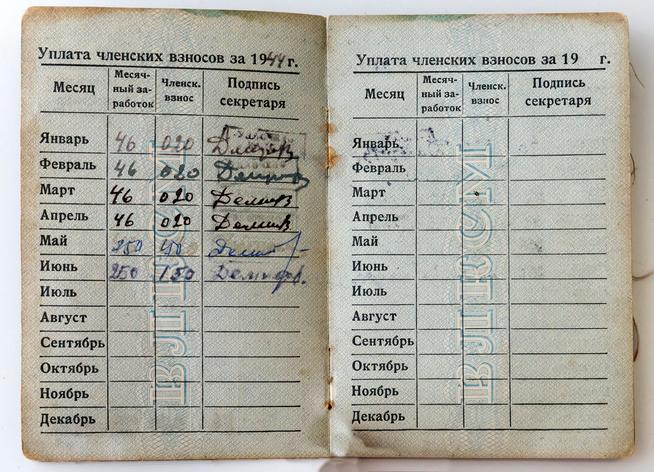 Уплата членских взносов за 1944 г.
Месяц
Месяч-
ный за-
работок
Членск.
взнос
Подпись
секретаря
Январь 46 020
Февраль 46 020
Март 46 020
Апрель 46 020
Май 250
Июнь 250 150
Июль
Август
Сентябрь
Октябрь
Ноябрь
Декабрь
ВЛКСМ
Уплата членских взносов за 19 г.
Месяц
Месяч-
ный за-
работок
Членск.
взнос
Подпись
секретаря
Январь
Февраль
Март
Апрель
Май
Июнь
Июль
Август
Сентябрь
Октябрь
Ноябрь
Декабрь
ВЛКСМ